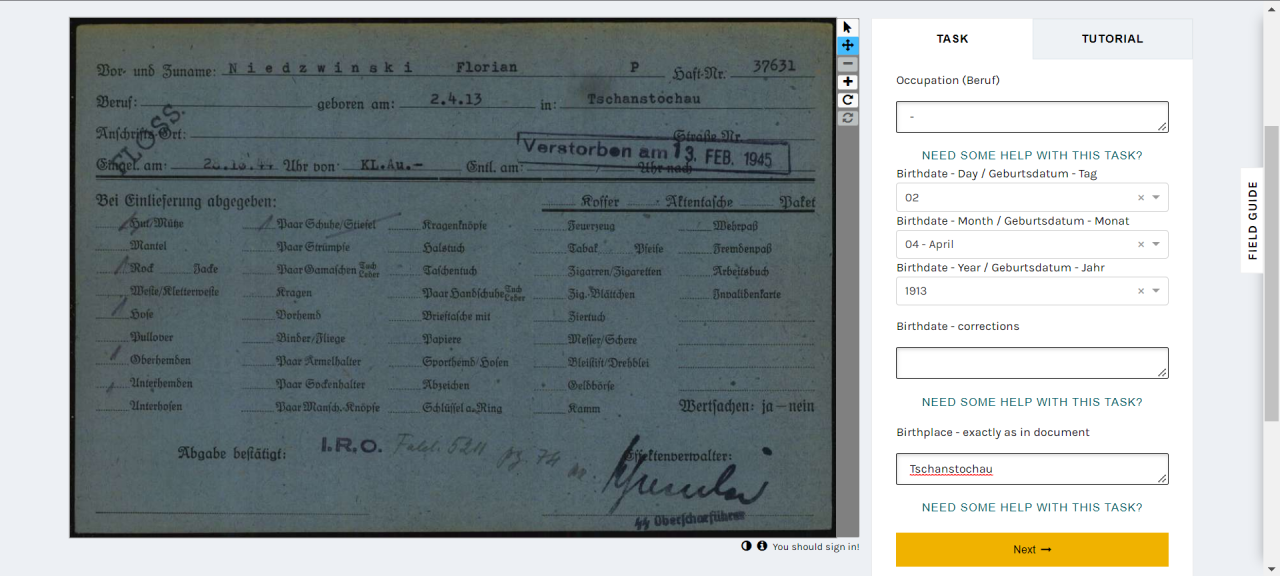 Vor- und Zuname: Niedzwinski Florian P Haft-Nr. 37631
Beruf: geboren am: 2.4.13 in: Tschanstochau
FLOSS.
Anschrifts-Ort: Straße Nr.
Verstorben am 13. FEB. 1945
Eingel. am: Uhr von: KL.Au.- Entl. am: Uhr nach
Bei Einlieferung abgegeben: Koffer Aktentasche Paket
Hut/Mütze Paar Schuhe/Stiefel Kragenknöpfe Feuerzeug Wehrpaß
Mantel Paar Strümpfe Halstuch Tabak Pfeife Fremdenpaß
Rock Jacke Paar Gamaschen Tuch Leder Taschentuch Zigarren/Zigaretten Arbeitsbuch
Weste/Kletterweste Kragen Paar Handschuhe Tuch Leder Zig.-Blättchen Invalidenkarte
Hose Vorhemd Brieftasche mit Ziertuch
Pullover Binder/Fliege Papiere Messer/Schere
Oberhemden Paar Ärmelhalter Sporthemd/Hosen Bleistift/Drehblei
Unterhemden Paar Sockenhalter Abzeichen Geldbörse
Unterhosen Paar Mansch.-Knöpfe Schlüssel a. Ring Kamm Wertsachen: ja – nein
Abgabe bestätigt: I.R.O. Effektenverwalter:
Oberscharführer
You should sign in!
TASK
TUTORIAL
Occupation (Beruf)
-
NEED SOME HELP WITH THIS TASK?
Birthdate - Day / Geburtsdatum - Tag
02
Birthdate - Month / Geburtsdatum - Monat
04 - April
Birthdate - Year / Geburtsdatum - Jahr
1913
Birthdate - corrections
NEED SOME HELP WITH THIS TASK?
Birthplace - exactly as in document
Tschanstochau
NEED SOME HELP WITH THIS TASK?
Next
FIELD GUIDE